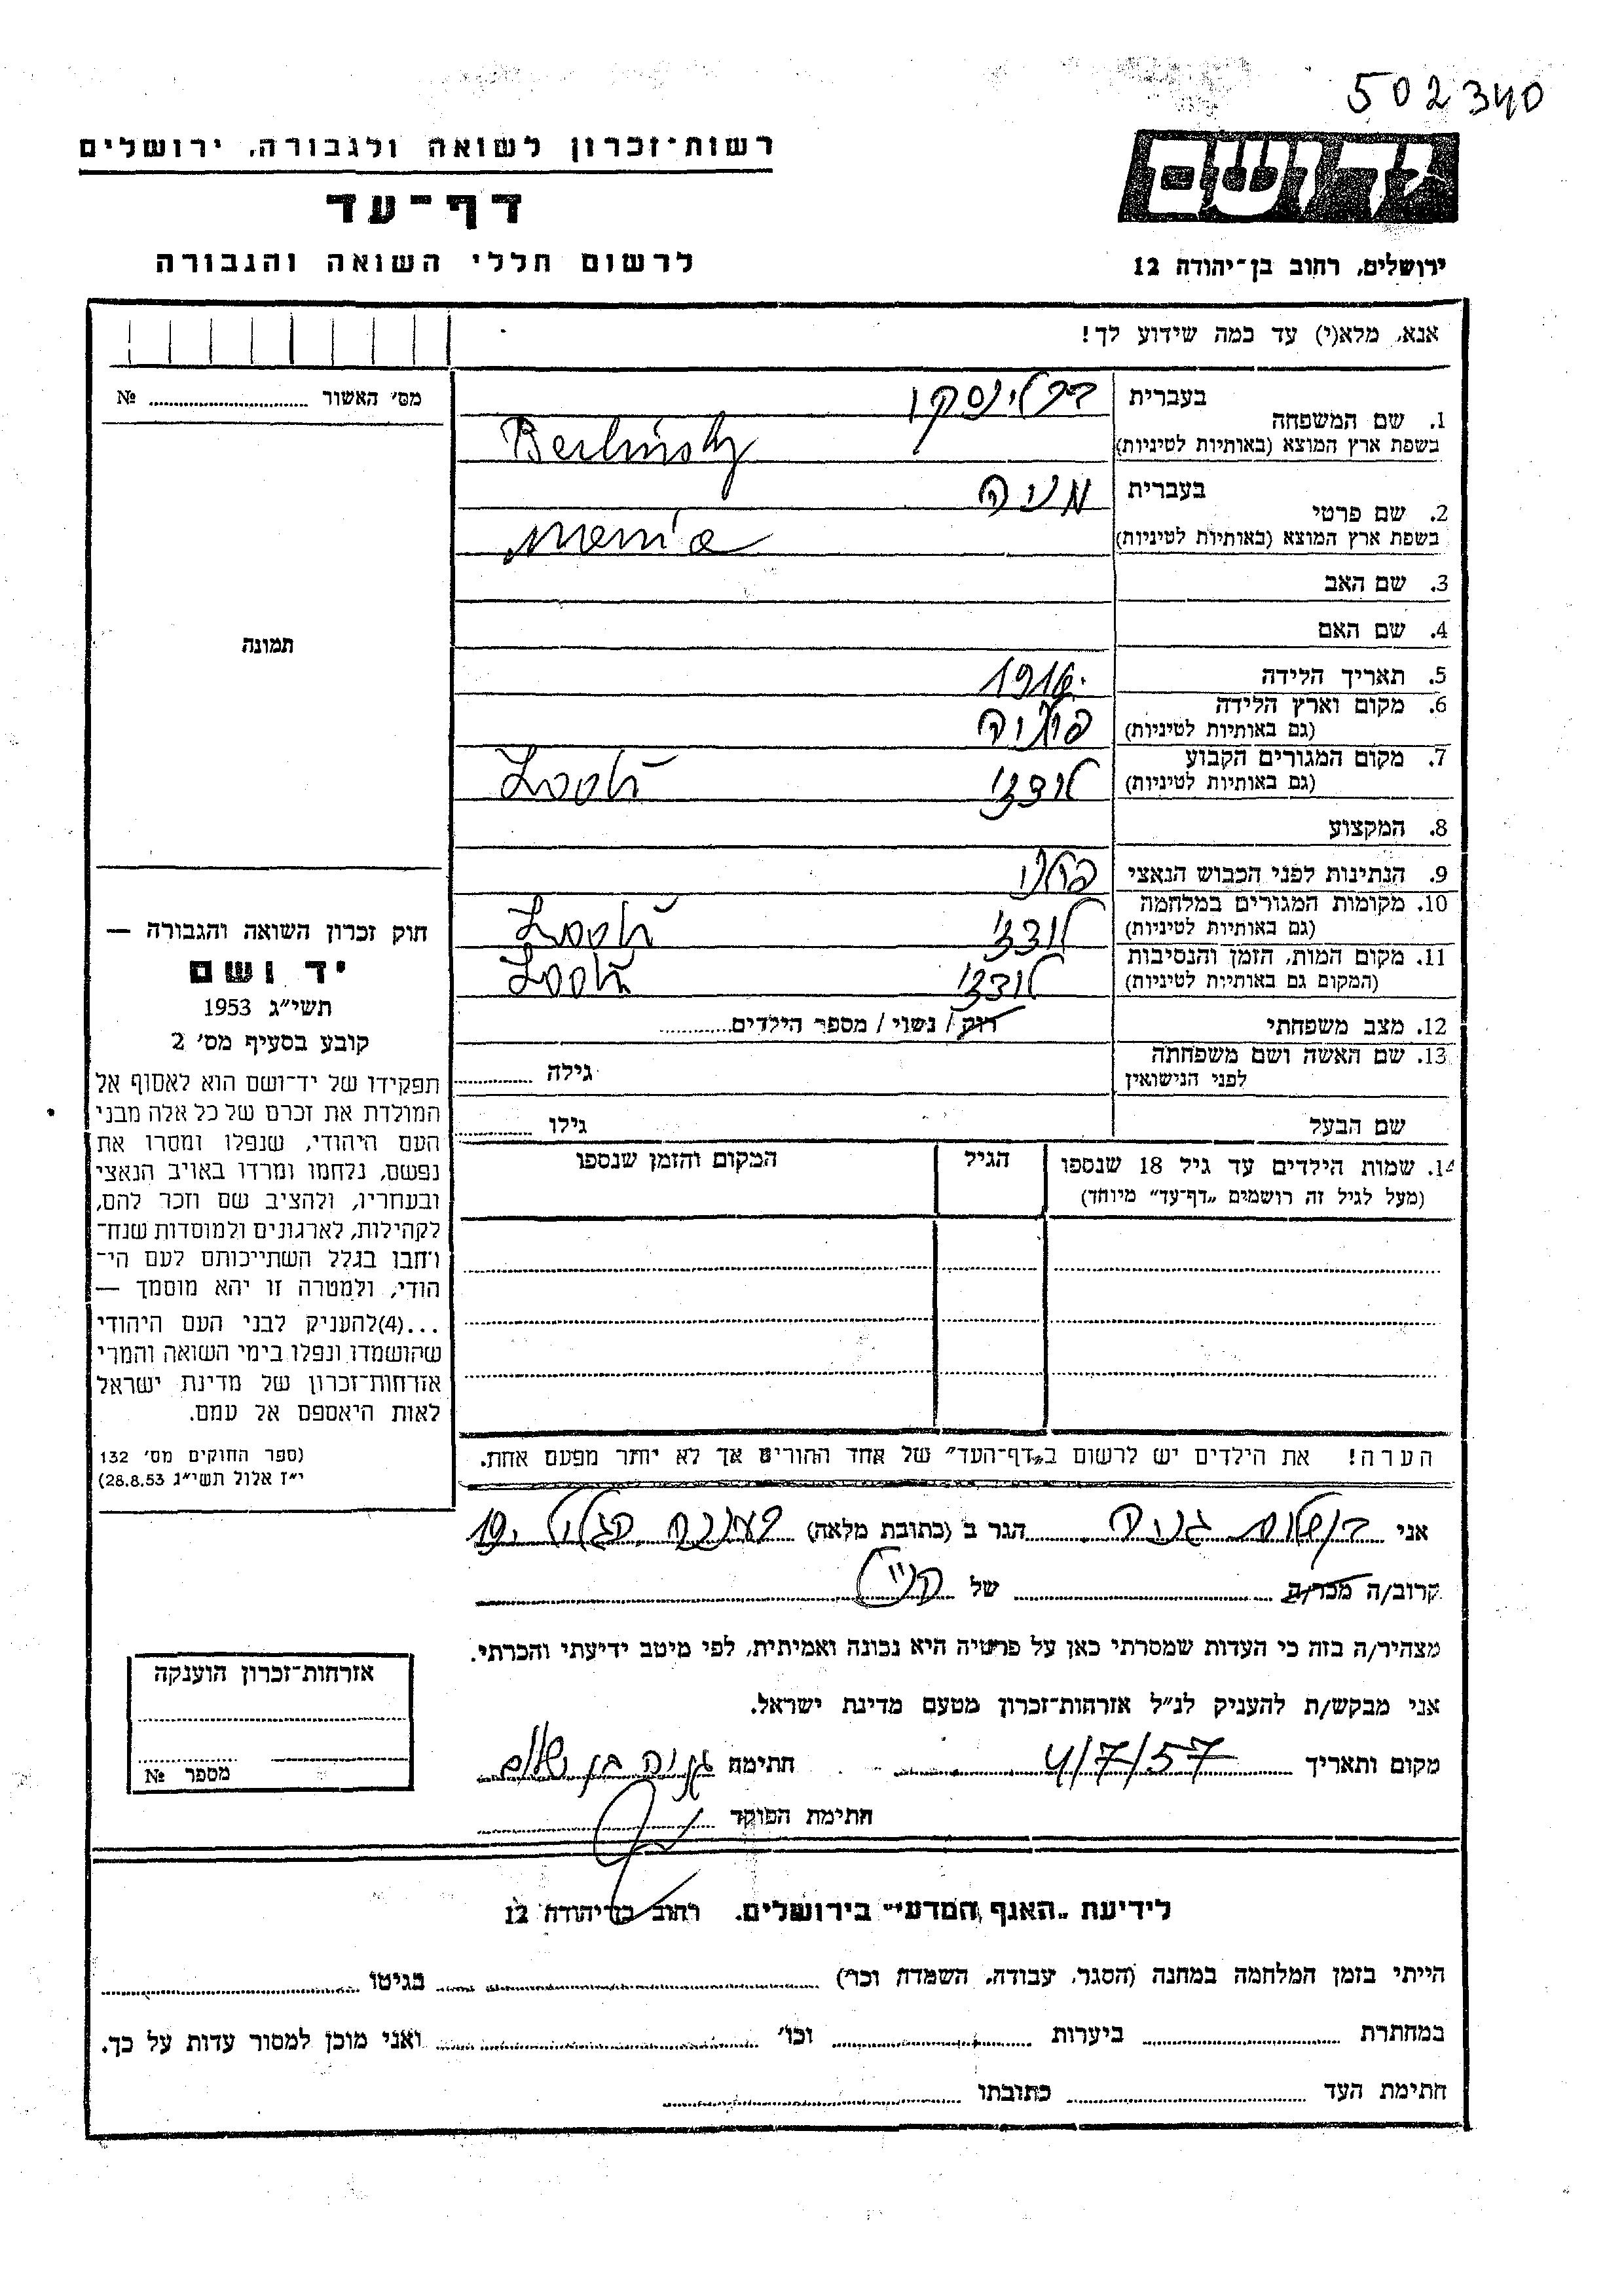 502340
רשות־זכרון לשואה ולגבורה, ירושלים
דף־עד
לרשום חללי השואה והגבורה
יד ושם
ירושלים, רחוב בן־יהודה 12
אנא, מלא(י) עד כמה שידוע לך!
מס׳ האשור № ........
תמונה
1. שם המשפחה
בעברית ברלינסקי
בשפת ארץ המוצא (באותיות לטיניות) Berlinsky
2. שם פרטי
בעברית מניה
בשפת ארץ המוצא (באותיות לטיניות) menia
3. שם האב
4. שם האם
5. תאריך הלידה 1916
6. מקום וארץ הלידה פולניה
(גם באותיות לטיניות)
7. מקום המגורים הקבוע לודז׳
(גם באותיות לטיניות)
8. המקצוע
9. הנתינות לפני הכבוש הנאצי פולני
10. מקומות המגורים במלחמה לודז׳
(גם באותיות לטיניות)
11. מקום המות, הזמן והנסיבות לודז׳
(המקום גם באותיות לטיניות)
12. מצב משפחתי רוק / נשוי / מספר הילדים........
13. שם האשה ושם משפחתה
לפני הנישואין גילה ........
שם הבעל גילו ........
14. שמות הילדים עד גיל 18 שנספו הגיל המקום והזמן שנספו
(מעל לגיל זה רושמים „דף־עד״ מיוחד)
הערה! את הילדים יש לרשום ב„דף־העד״ של אחד ההורים אך לא יותר מפעם אחת.
חוק זכרון השואה והגבורה —
יד ושם
תשי״ג 1953
קובע בסעיף מס׳ 2
תפקידו של יד־ושם הוא לאסוף אל
המולדת את זכרם של כל אלה מבני
העם היהודי, שנפלו ומסרו את
נפשם, נלחמו ומרדו באויב הנאצי
ובעוזריו, ולהציב שם וזכר להם,
לקהילות, לארגונים ולמוסדות שנח־
רבו בגלל השתייכותם לעם הי־
הודי, ולמטרה זו יהא מוסמך —
...(4)להעניק לבני העם היהודי
שהושמדו ונפלו בימי השואה והמרי
אזרחות־זכרון של מדינת ישראל
לאות היאספם אל עמם.
(ספר החוקים מס׳ 132
י״ז אלול תשי״ג 28.8.53)
אני בן שלום גניה הגר ב (כתובת מלאה) הגליל 19
קרוב/ה מכר/ה ........ של הנ״ל
מצהיר/ה בזה כי העדות שמסרתי כאן על פרטיה היא נכונה ואמיתית, לפי מיטב ידיעתי והכרתי.
אני מבקש/ת להעניק לנ״ל אזרחות־זכרון מטעם מדינת ישראל.
מקום ותאריך 4/7/57 חתימה גניה בן שלום
חתימת הפוקד ........
אזרחות־זכרון הוענקה
מספר №
לידיעת „האגף המדעי״ בירושלים. רחוב בן־יהודה 12
הייתי בזמן המלחמה במחנה (הסגר, עבודה, השמדה וכו׳) ........ בגיטו ........
במחתרת ........ ביערות ........ וכו׳ ........ ואני מוכן למסור עדות על כך.
חתימת העד ........ כתובתו ........